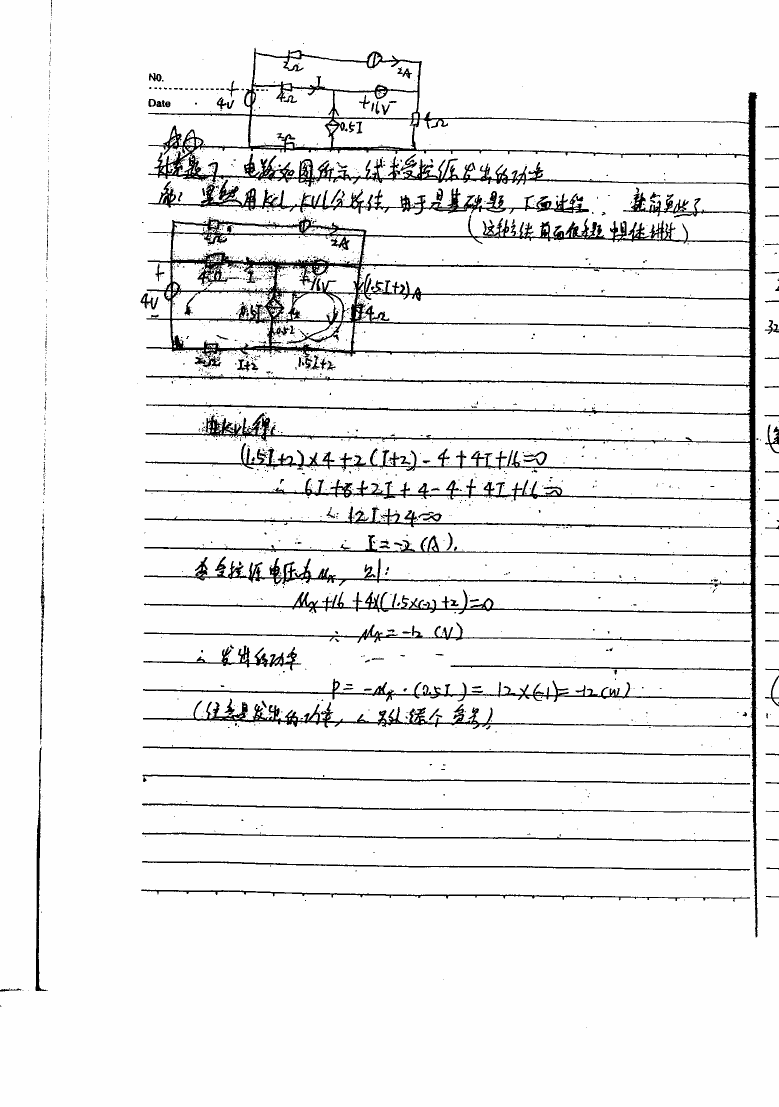 No.
Date
2Ω 2A
4V + 4Ω I +16V− 4Ω
0.5I
2Ω
补充题7 电路如图所示,试求受控源发出的功率
解:显然用KCL,KVL分析法,由于是基础题,下面过程
2Ω 2A
+ 4Ω I +16V− (1.5I+2)A
4V 0.5I 4Ω
−
2Ω I+2 1.5I+2
由KVL得:
(1.5I+2)×4+2(I+2)-4+4I+16=0
∴ 6I+8+2I+4-4+4I+16=0
∴ 12I+24=0
∴ I=-2(A).
受控源电压为Ux, 则:
Ux+16+4×(1.5×(-2)+2)=0
∴ Ux=-12 (V)
∴ 发出的功率
P=-Ux·(0.5I)=12×(-1)=-12(W)
(注意是发出的功率,∴ 个负号)
32